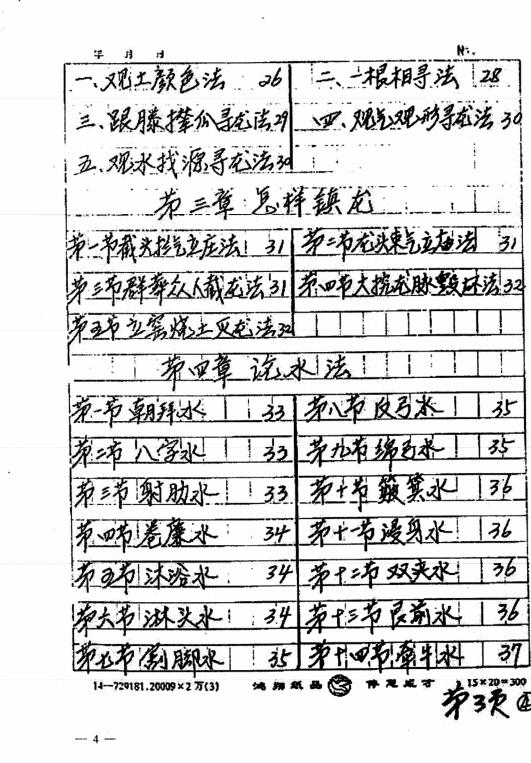 年 月 日 №.
一、观土颜色法 26 二、一根相寻法 28
三、跟藤摸瓜寻龙法29 四、观气观形寻龙法 30
五、观水找源寻龙法30
第三章 怎样镇龙
第一节截头拦气立庄法 31 第二节龙头束气立庙法 31
第三节群葬众人截龙法31 第四节大挖龙脉毁坏法32
第五节立窑烧土灭龙法32
第四章 论水法
第一节朝拜水 33 第八节反弓水 35
第二节八字水 33 第九节绵弓水 35
第三节射肋水 33 第十节簸箕水 36
第四节卷廉水 34 第十一节漫身水 36
第五节沐浴水 34 第十二节双夹水 36
第六节淋头水 34 第十三节艮前水 36
第七节割脚水 35 第十四节牵牛水 37
14—729181.20009×2万(3) 鸿翔纸品 伴您成才 15×20=300
第3页
— 4 —